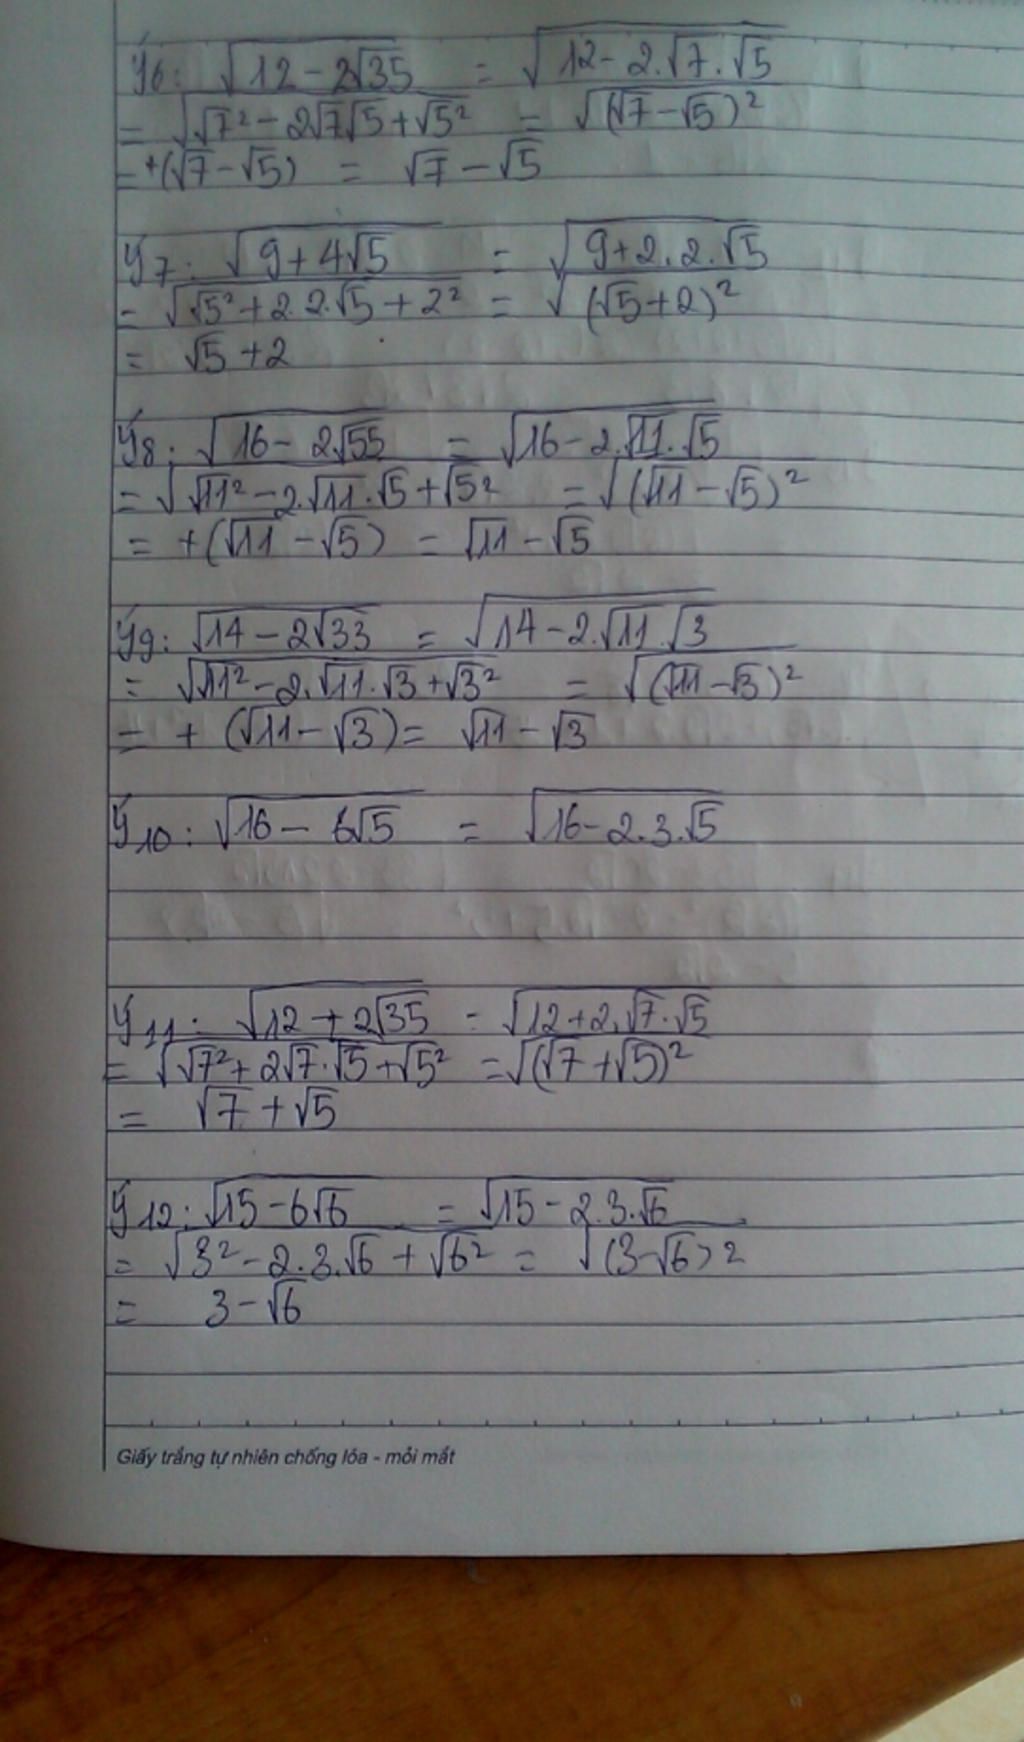 Ý6: √(12 - 2√35) = √(12 - 2.√7.√5)
= √(√7² - 2√7√5 + √5²) = √((√7 - √5)²)
= +(√7 - √5) = √7 - √5
Ý7: √(9 + 4√5) = √(9 + 2.2.√5)
= √(√5² + 2.2.√5 + 2²) = √((√5 + 2)²)
= √5 + 2
Ý8: √(16 - 2√55) = √(16 - 2.√11.√5)
= √(√11² - 2.√11.√5 + √5²) = √((√11 - √5)²)
= +(√11 - √5) = √11 - √5
Ý9: √(14 - 2√33) = √(14 - 2.√11.√3)
= √(√11² - 2.√11.√3 + √3²) = √((√11 - √3)²)
= + (√11 - √3) = √11 - √3
Ý10: √(16 - 6√5) = √(16 - 2.3.√5)
Ý11: √(12 + 2√35) = √(12 + 2.√7.√5)
= √(√7² + 2√7.√5 + √5²) = √((√7 + √5)²)
= √7 + √5
Ý12: √(15 - 6√6) = √(15 - 2.3.√6)
= √(3² - 2.3.√6 + √6²) = √((3 - √6)²)
= 3 - √6
Giấy trắng tự nhiên chống lóa - mỏi mắt